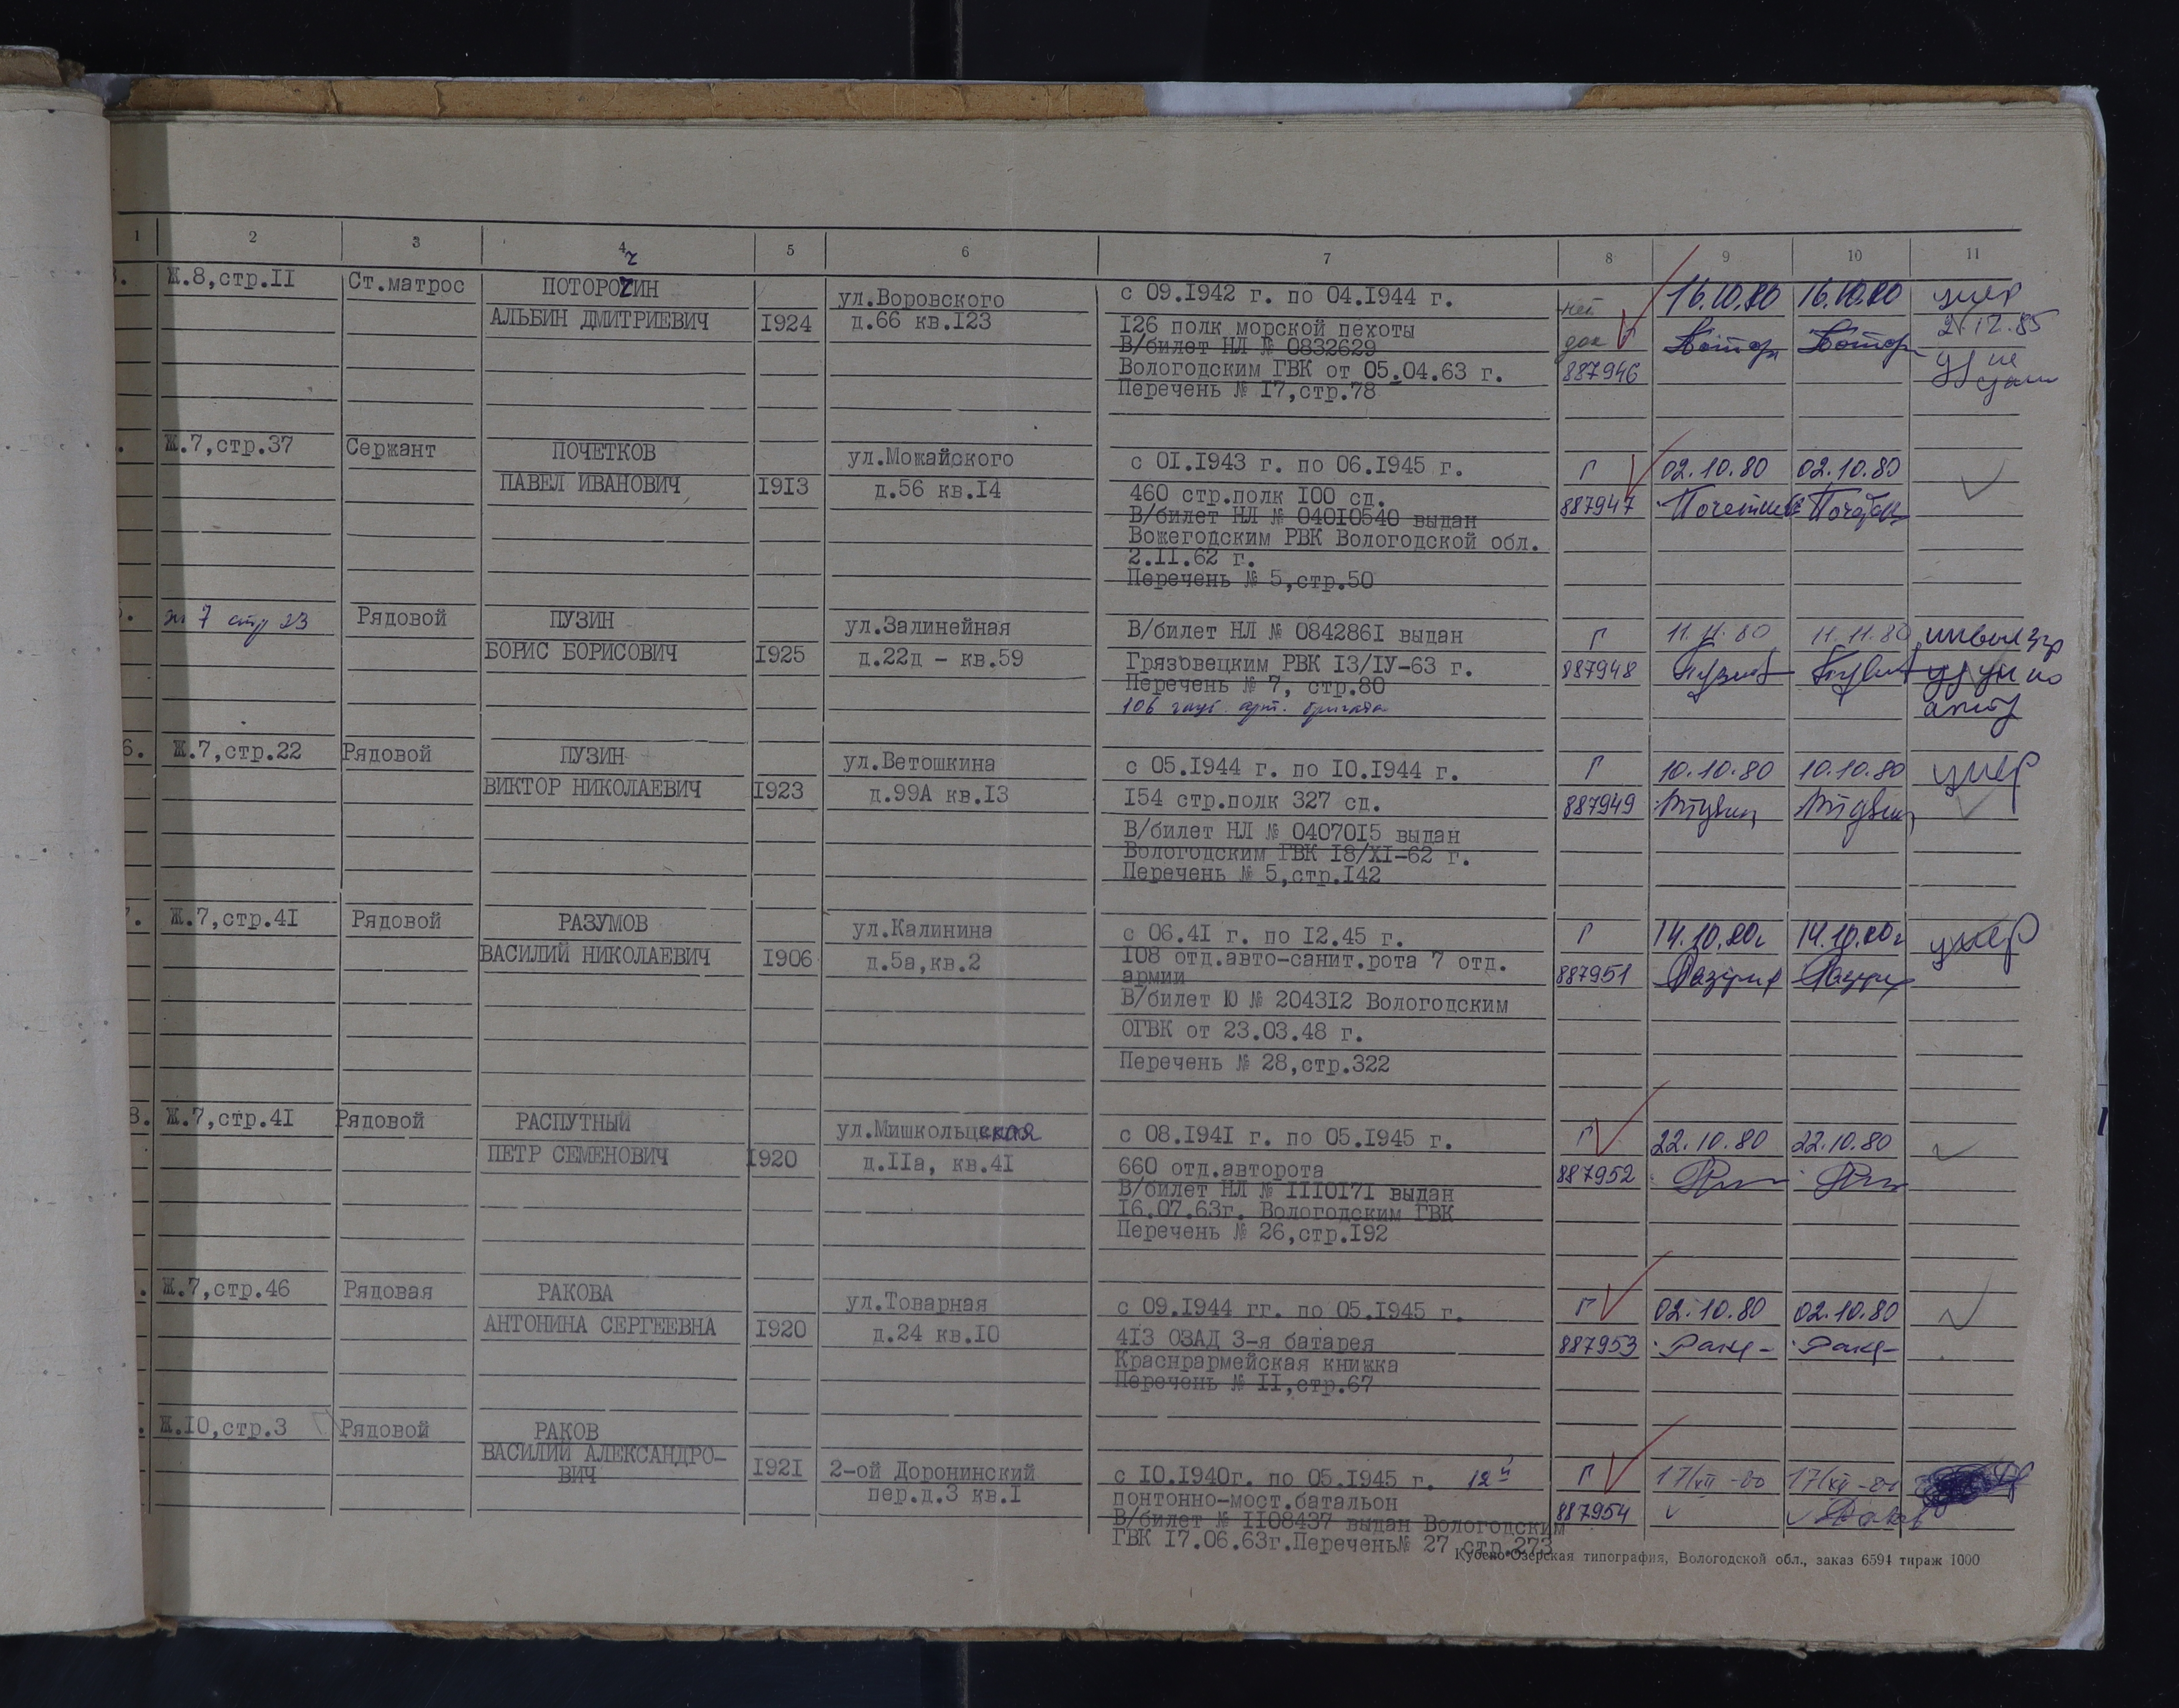 1 2 3 4 5 6 7 8 9 10 11
Ж.8,стр.II Ст.матрос ПОТОРОЧИН ул.Воровского с 09.I942 г. по 04.I944 г. нет 16.10.80 16.10.80 умер
АЛЬБИН ДМИТРИЕВИЧ I924 д.66 кв.I23 I26 полк морской пехоты док Г 2.12.85
В/билет НЛ № 0832629
Вологодским ГВК от 05.04.63 г. 887946
Перечень № I7,стр.78
Ж.7,стр.37 Сержант ПОЧЕТКОВ ул.Можайского с 0I.I943 г. по 06.I945 г. Г 02.10.80 02.10.80
ПАВЕЛ ИВАНОВИЧ I9I3 д.56 кв.I4 460 стр.полк I00 сд. 887947
В/билет НЛ № 040I0540 выдан
Вожегодским РВК Вологодской обл.
2.II.62 г.
Перечень № 5,стр.50
ж 7 стр 23 Рядовой ПУЗИН ул.Залинейная В/билет НЛ № 084286I выдан Г 11.11.80 11.11.80
БОРИС БОРИСОВИЧ I925 д.22д - кв.59 Грязовецким РВК I3/IУ-63 г. 887948
Перечень № 7, стр.80
106 арт. бригада
6. Ж.7,стр.22 Рядовой ПУЗИН ул.Ветошкина с 05.I944 г. по I0.I944 г. Г 10.10.80 10.10.80 умер
ВИКТОР НИКОЛАЕВИЧ I923 д.99А кв.I3 I54 стр.полк 327 сд. 887949
В/билет НЛ № 04070I5 выдан
Вологодским ГВК I8/XI-62 г.
Перечень № 5,стр.I42
Ж.7,стр.4I Рядовой РАЗУМОВ ул.Калинина с 06.4I г. по I2.45 г. Г 14.10.80г 14.10.80г умер
ВАСИЛИЙ НИКОЛАЕВИЧ I906 д.5а,кв.2 I08 отд.авто-санит.рота 7 отд. 887951
армии
В/билет Ю № 2043I2 Вологодским
ОГВК от 23.03.48 г.
Перечень № 28,стр.322
8. Ж.7,стр.4I Рядовой РАСПУТНЫЙ ул.Мишкольцская с 08.I94I г. по 05.I945 г. Г 22.10.80 22.10.80
ПЕТР СЕМЕНОВИЧ I920 д.IIа, кв.4I 660 отд.авторота 887952
В/билет НЛ № III0I7I выдан
I6.07.63г. Вологодским ГВК
Перечень № 26,стр.I92
Ж.7,стр.46 Рядовая РАКОВА ул.Товарная с 09.I944 гг. по 05.I945 г. Г 02.10.80 02.10.80
АНТОНИНА СЕРГЕЕВНА I920 д.24 кв.I0 4I3 ОЗАД 3-я батарея 887953
Красноармейская книжка
Перечень № II,стр.67
Ж.I0,стр.3 Рядовой РАКОВ
ВАСИЛИЙ АЛЕКСАНДРО-
ВИЧ I92I 2-ой Доронинский с I0.I940г. по 05.I945 г. 12й Г 17/XII-80 17/XII-80
пер.д.3 кв.I понтонно-мост.батальон 887954
В/билет № II08437 выдан Вологодским
ГВК I7.06.63г.Перечень№ 27 стр.273
Кубено-Озерская типография, Вологодской обл., заказ 6594 тираж 1000